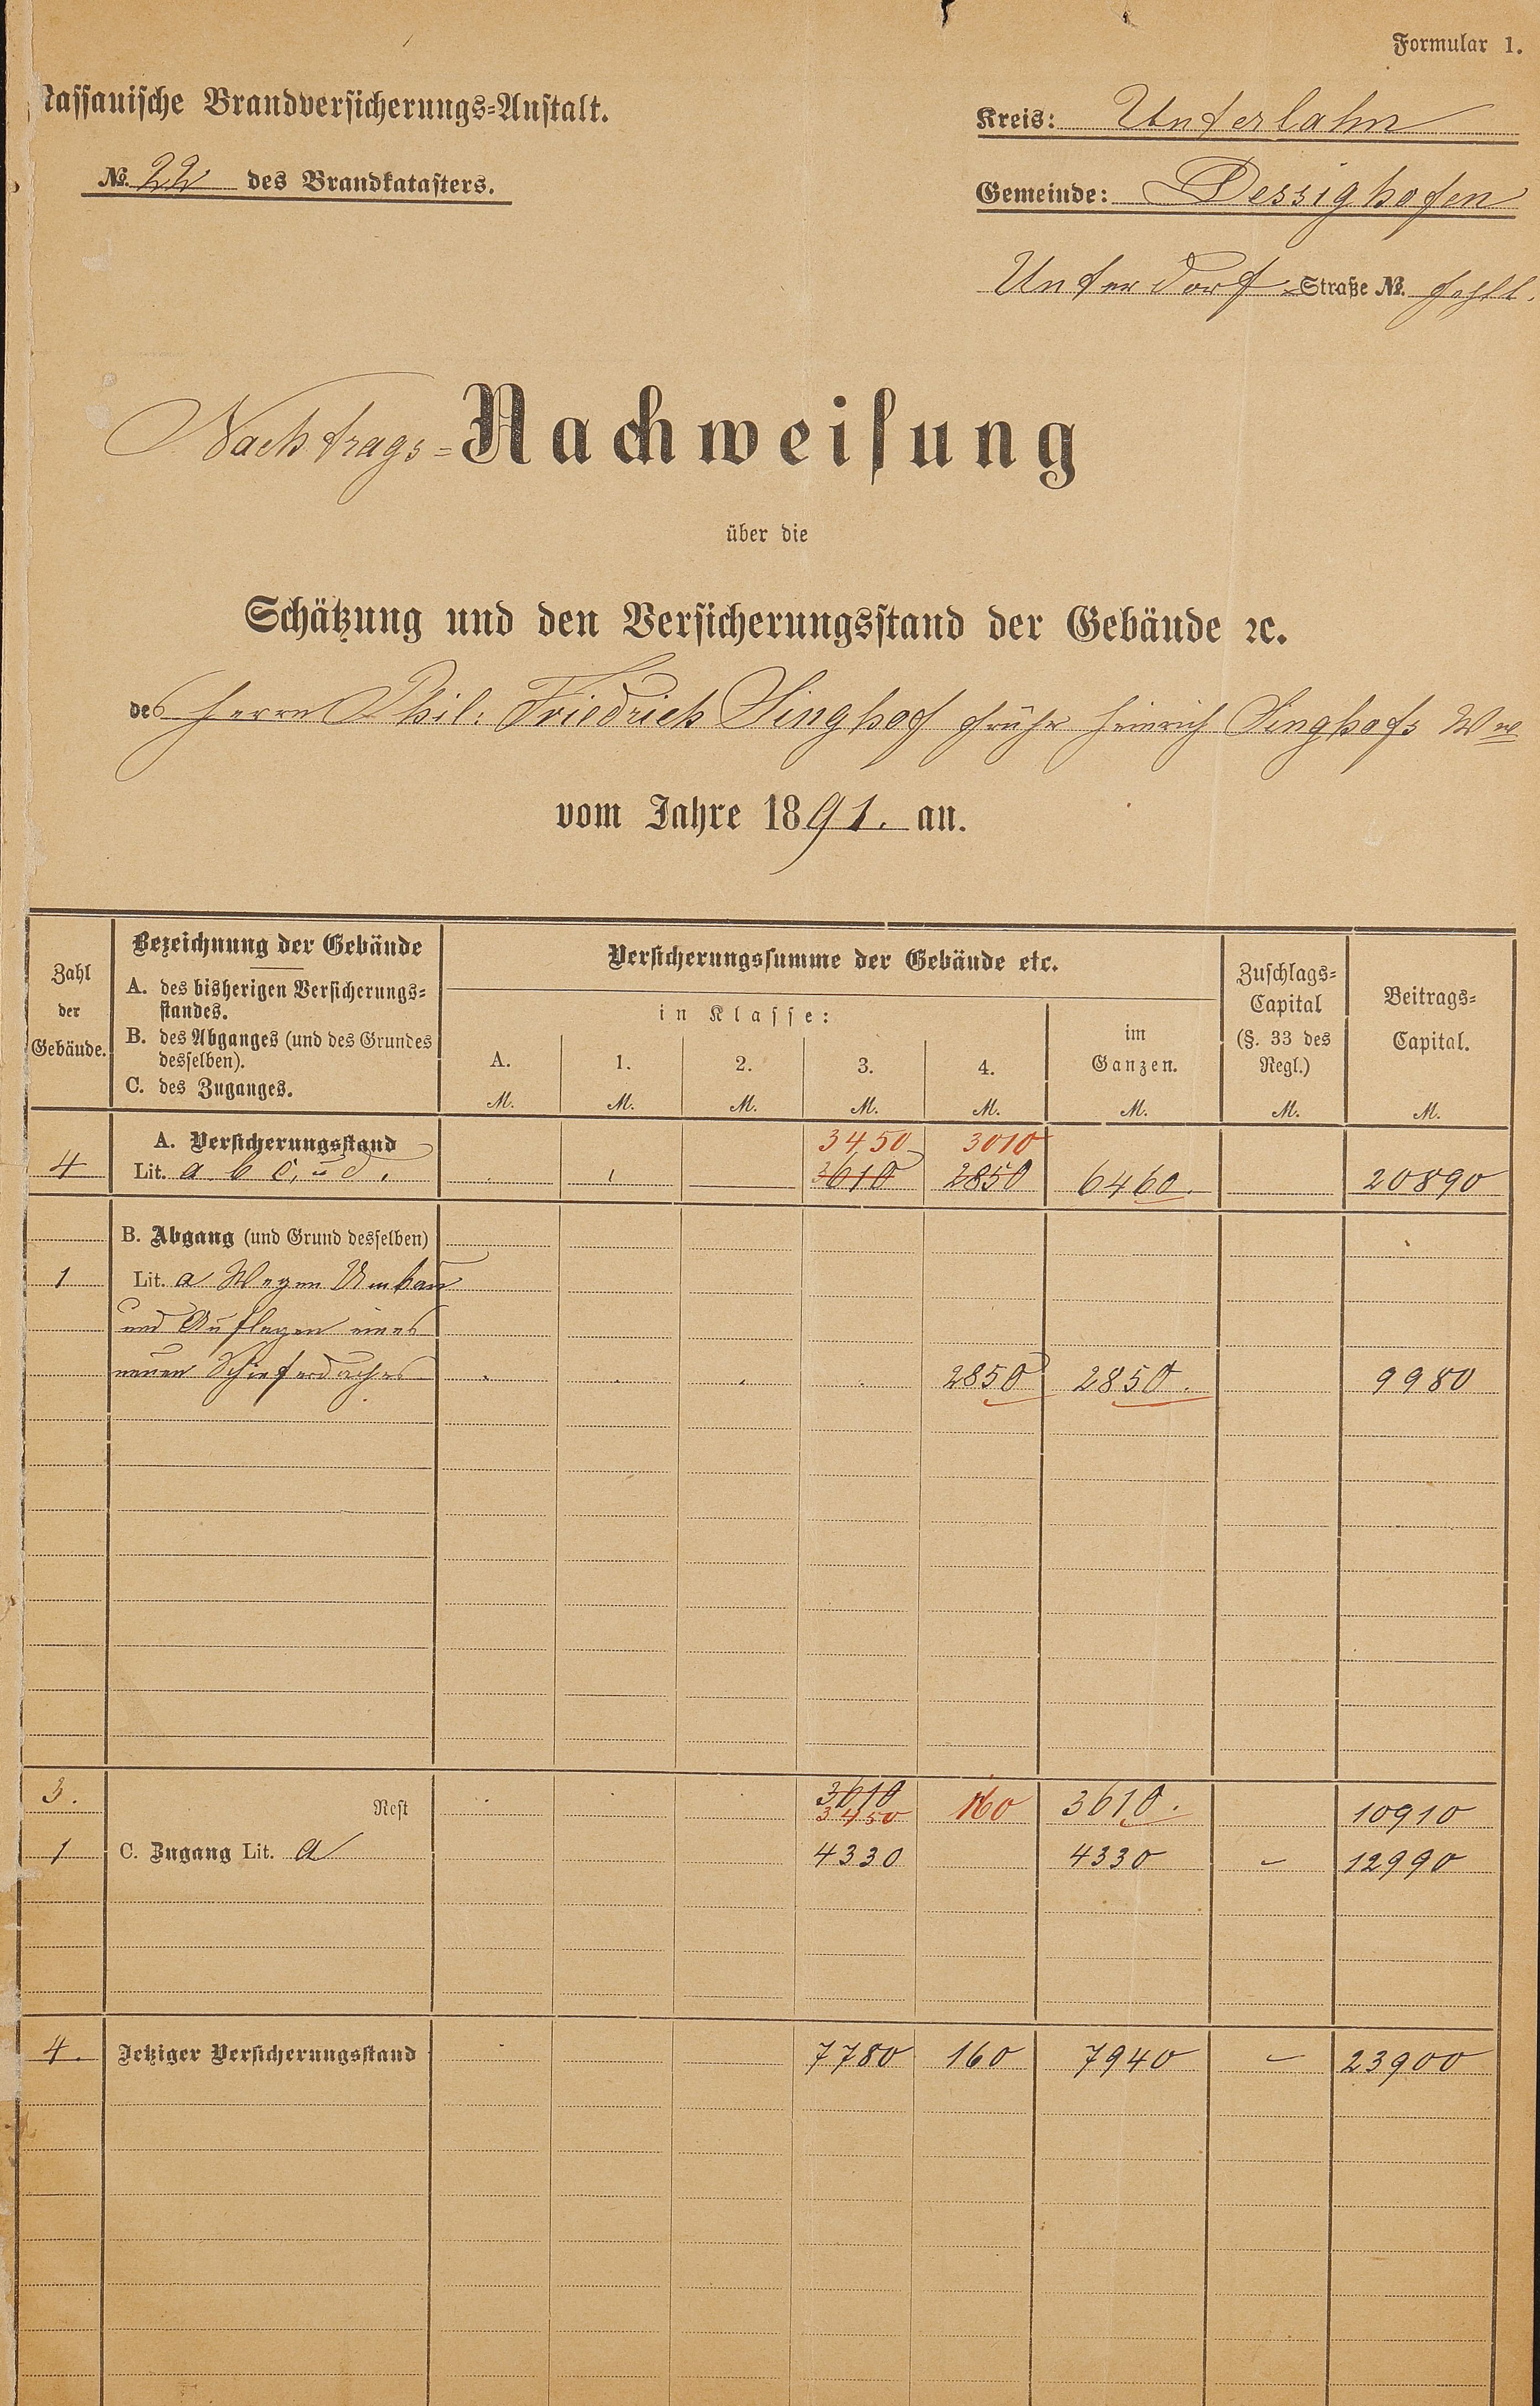 Formular 1.
Nassauische Brandversicherungs-Anstalt.
No. 22 des Brandkatasters.
Kreis: Unterlahn
Gemeinde: Dessighofen
Unterdorf Straße No. fehlt.
Nachtrags=Nachweisung
über die
Schätzung und den Versicherungsstand der Gebäude ꝛc.
des Herrn Phil. Friedrich Singhof früher Heinrich Singhofs Ww
vom Jahre 1891. an.
Zahl der Gebäude.
Bezeichnung der Gebäude
A. des bisherigen Versicherungs=
standes.
B. des Abganges (und des Grundes
desselben).
C. des Zuganges.
Versicherungssumme der Gebäude etc.
in Klasse:
A. 1. 2. 3. 4.
M. M. M. M. M.
im
Ganzen.
M.
Zuschlags=
Capital
(§. 33 des
Regl.)
M.
Beitrags=
Capital.
M.
A. Versicherungsstand 3450 3010
4 Lit. a b c, u d. 3610 2850 6460. 20890
B. Abgang (und Grund desselben)
1 Lit. a Wegen Umbau
und Auflegen eines
neuen Schieferdaches 2850 2850. 9980
3. Rest 3610 160 3610. 10910
3450
1 C. Zugang Lit. a 4330 4330 – 12990
4. Jetziger Versicherungsstand 7780 160 7940 – 23900